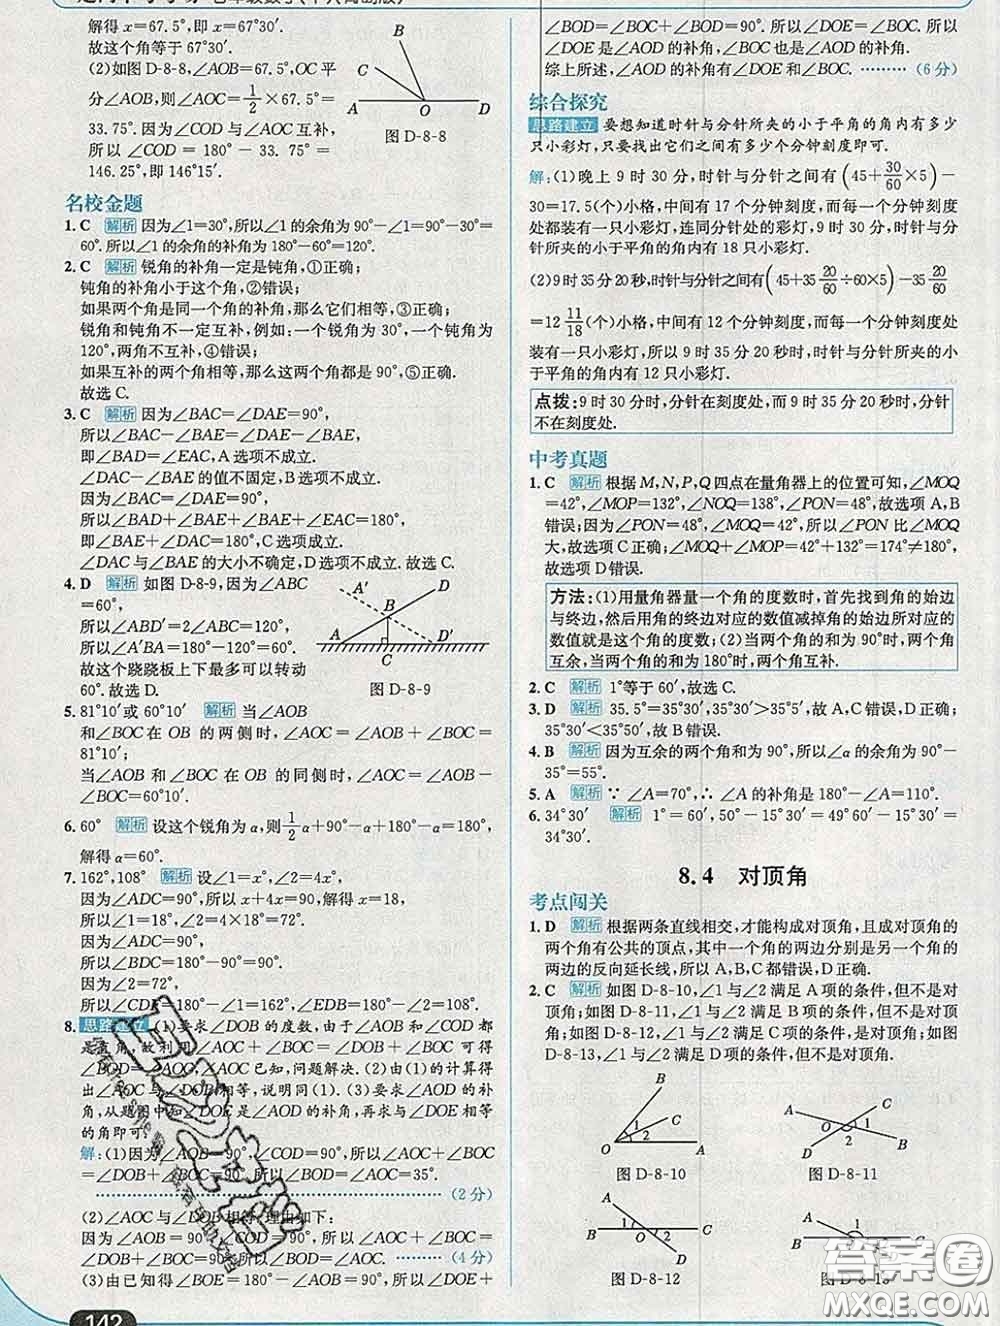 解得 x=67.5,即 x=67°30′.
故这个角等于 67°30′.
(2)如图 D-8-8,∠AOB=67.5°,OC 平
分∠AOB,则∠AOC=1/2×67.5°=
33.75°.因为∠COD 与∠AOC 互补,
所以∠COD=180°-33.75°=
146.25°,即 146°15′.
B
C
A O D
图 D-8-8
名校金题
1. C 解析 因为∠1=30°,所以∠1 的余角为 90°-∠1=90°-30°=
60°.所以∠1 的余角的补角为 180°-60°=120°.
2. C 解析 锐角的补角一定是钝角,①正确;
钝角的补角小于这个角,②错误;
如果两个角是同一个角的补角,那么它们相等,③正确;
锐角和钝角不一定互补,例如:一个锐角为 30°,一个钝角为
120°,两角不互补,④错误;
如果互补的两个角相等,那么这两个角都是 90°,⑤正确.
故选 C.
3. C 解析 因为∠BAC=∠DAE=90°,
所以∠BAC-∠BAE=∠DAE-∠BAE,
即∠BAD=∠EAC,A 选项不成立.
∠DAC-∠BAE 的值不固定,B 选项不成立.
因为∠BAD+∠BAE=90°,
所以∠BAD+∠BAE+∠BAE+∠EAC=180°,
即∠BAE+∠DAC=180°,C 选项成立.
∠DAC 与∠BAE 的大小不确定,D 选项不成立.故选 C.
4. D 解析 如图 D-8-9,因为∠ABC
=60°,
所以∠ABD′=2∠ABC=120°.
所以∠A′BA=180°-120°=60°.
故这个跷跷板上下最多可以转动
60°.故选 D.
A′ D
B
A C D′
图 D-8-9
5. 81°10′或 60°10′ 解析 当∠AOB
和∠BOC 在 OB 的两侧时,∠AOC=∠AOB+∠BOC=
81°10′;
当∠AOB 和∠BOC 在 OB 的同侧时,∠AOC=∠AOB-
∠BOC=60°10′.
6. 60° 解析 设这个锐角为 α,则1/2α+90°-α+180°-α=180°,
解得 α=60°.
7. 162°,108° 解析 设∠1=x°,∠2=4x°,
因为∠ADC=90°,所以 x+4x=90,解得 x=18,
所以∠1=18°,∠2=4×18°=72°.
因为∠ADC=90°,
所以∠BDC=90°,
因为∠2=72°,
所以∠CDE=180°-∠1=162°,∠EDB=180°-∠2=108°.
8. 思路建立 (1)要求∠DOB 的度数,由于∠AOB 和∠COD 都
是直角,故利用∠AOC+∠BOC=∠DOB+∠BOC 可得
∠DOB=∠AOC,∠AOC 已知,问题解决.(2)由(1)的计算得
出∠AOC 与∠DOB 相等,说明同(1).(3)要求∠AOD 的补
角,从题图中找出∠BOC 是∠AOD 的补角,再求与∠DOE 相等
的角即可.
解:(1)因为∠AOB=90°,所以∠AOC+∠BOC=
∠DOB+∠BOC=90°,所以∠BOD=∠AOC=35°.
(2 分)
(2)∠AOC 与∠DOB 相等,理由如下:
因为∠AOB=90°,∠COD=90°,所以∠AOC+∠BOC=
∠DOB+∠BOC=90°,所以∠BOD=∠AOC. (4 分)
(3)由已知得∠BOE=180°-∠AOB=90°,∠DOE+
142
∠BOD=∠BOD+∠BOC=90°,所以∠DOE=∠BOC.所
以∠DOE 是∠AOD 的补角,∠BOC 也是∠AOD 的补角.
综上所述,∠AOD 的补角有∠DOE 和∠BOC. (6 分)
综合探究
思路建立 要想知道时针与分针所夹的小于平角的角内有多少
只小彩灯,只要找出它们之间有多少个分钟刻度即可.
解:(1)晚上 9 时 30 分,时针与分针之间有(45+30/60×5)-
30=17.5(个)小格,中间有 17 个分钟刻度,而每一个分钟刻
度处装有一只小彩灯,连同分针处的小彩灯,9 时 30 分,时针与
分针所夹的小于平角的角内有 18 只小彩灯.
(2)9 时 35 分 20 秒,时针与分针之间有(45+35 20/60÷60×5)-35 20/60
=12 11/18(个)小格,中间有 12 个分钟刻度,而每一个分钟刻度处
装有一只小彩灯,所以 9 时 35 分 20 秒时,时针与分针所夹的小
于平角的角内有 12 只小彩灯.
点拨:9 时 30 分时,分针在刻度处,而 9 时 35 分 20 秒时,分针
不在刻度处.
中考真题
1. C 解析 根据 M,N,P,Q 四点在量角器上的位置可知,∠MOQ
=42°,∠MOP=132°,∠NOQ=138°,∠PON=48°,故选项 A,B
错误;因为∠PON=48°,∠MOQ=42°,所以∠PON 比∠MOQ
大,故选项 C 正确;∠MOQ+∠MOP=42°+132°=174°≠180°,
故选项 D 错误.
方法:(1)用量角器量一个角的度数时,首先找到角的始边
与终边,然后用角的终边对应的数值减掉角的始边所对应的
数值就是这个角的度数;(2)当两个角的和为 90°时,两个角
互余,当两个角的和为 180°时,两个角互补.
2. C 解析 1°等于 60′,故选 C.
3. D 解析 35.5°=35°30′,35°30′>35°5′,故 A,C 错误,D 正确;
35°30′<35°50′,故 B 错误.
4. B 解析 因为互余的两个角和为 90°,所以∠α 的余角为 90°-
35°=55°.
5. A 解析 ∵∠A=70°,∴∠A 的补角是 180°-∠A=110°.
6. 34°30′ 解析 1°=60′,50°-15°30′=49°60′-15°30′=
34°30′.
8.4 对顶角
考点闯关
1. D 解析 根据两条直线相交,才能构成对顶角,且成对顶角的
两个角有公共的顶点,其中一个角的两边分别是另一个角的
两边的反向延长线,所以 A,B,C 都错误,D 正确.
2. C 解析 如图 D-8-10,∠1 与∠2 满足 A 项的条件,但不是对
顶角;如图 D-8-11,∠1 与∠2 满足 B 项的条件,但不是对顶角;
如图 D-8-12,∠1 与∠2 满足 C 项的条件,是对顶角;如图
D-8-13,∠1 与∠2 满足 D 项的条件,但不是对顶角.
A
C
1
2
O B
图 D-8-10
A C
1
2
B
图 D-8-11
A
1
B C
2
D
图 D-8-12
图 D-8-13
答案圈
MXQE.COM